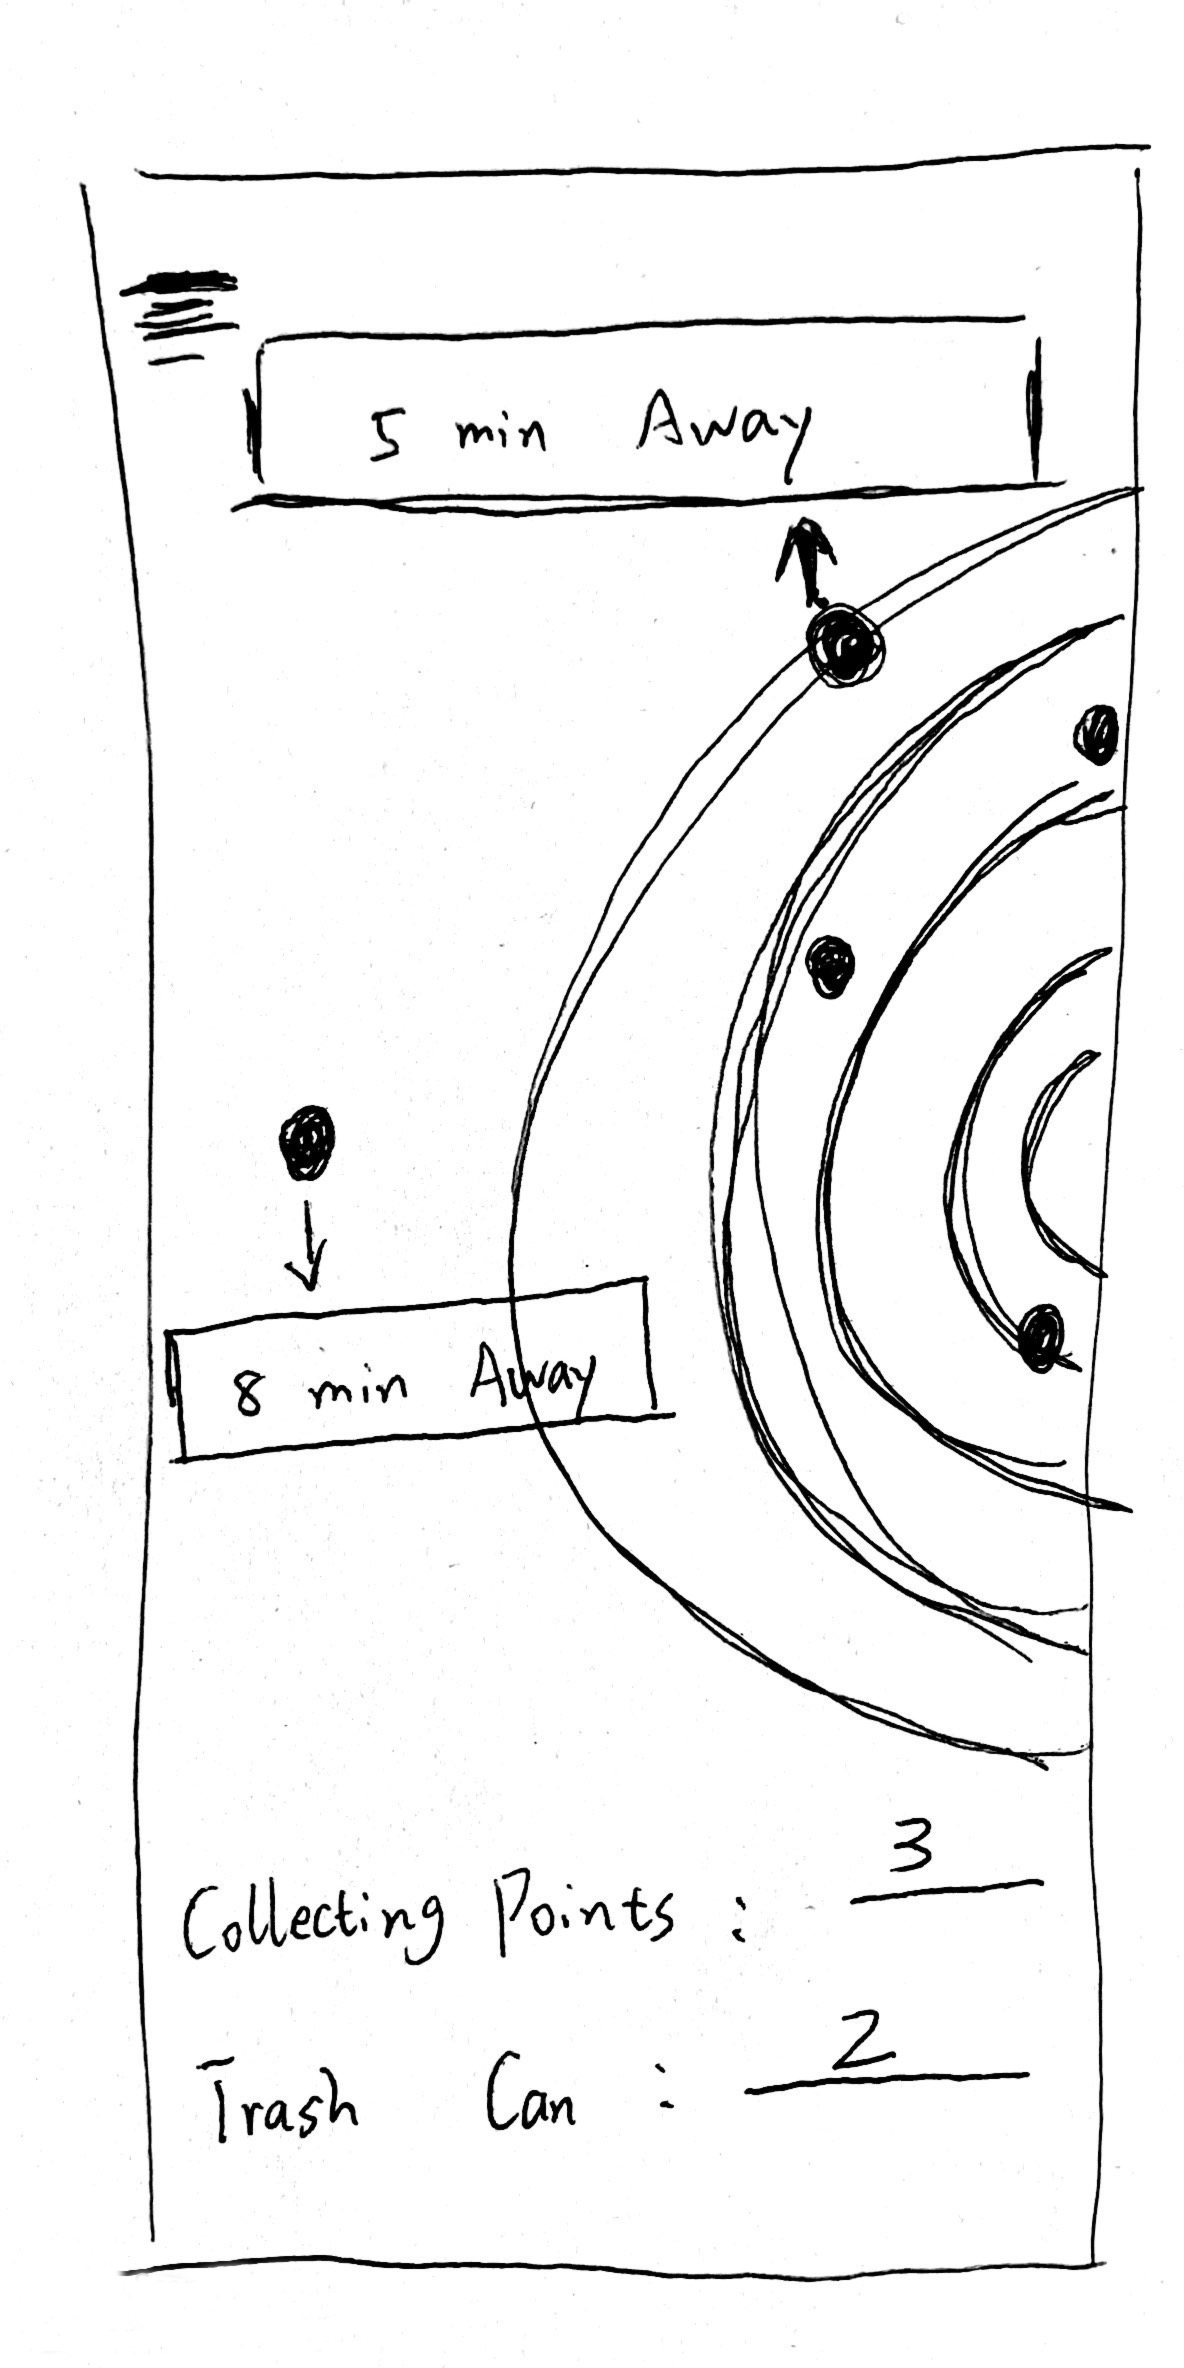 5 min Away
8 min Away
Collecting Points : 3
Trash Can : 2